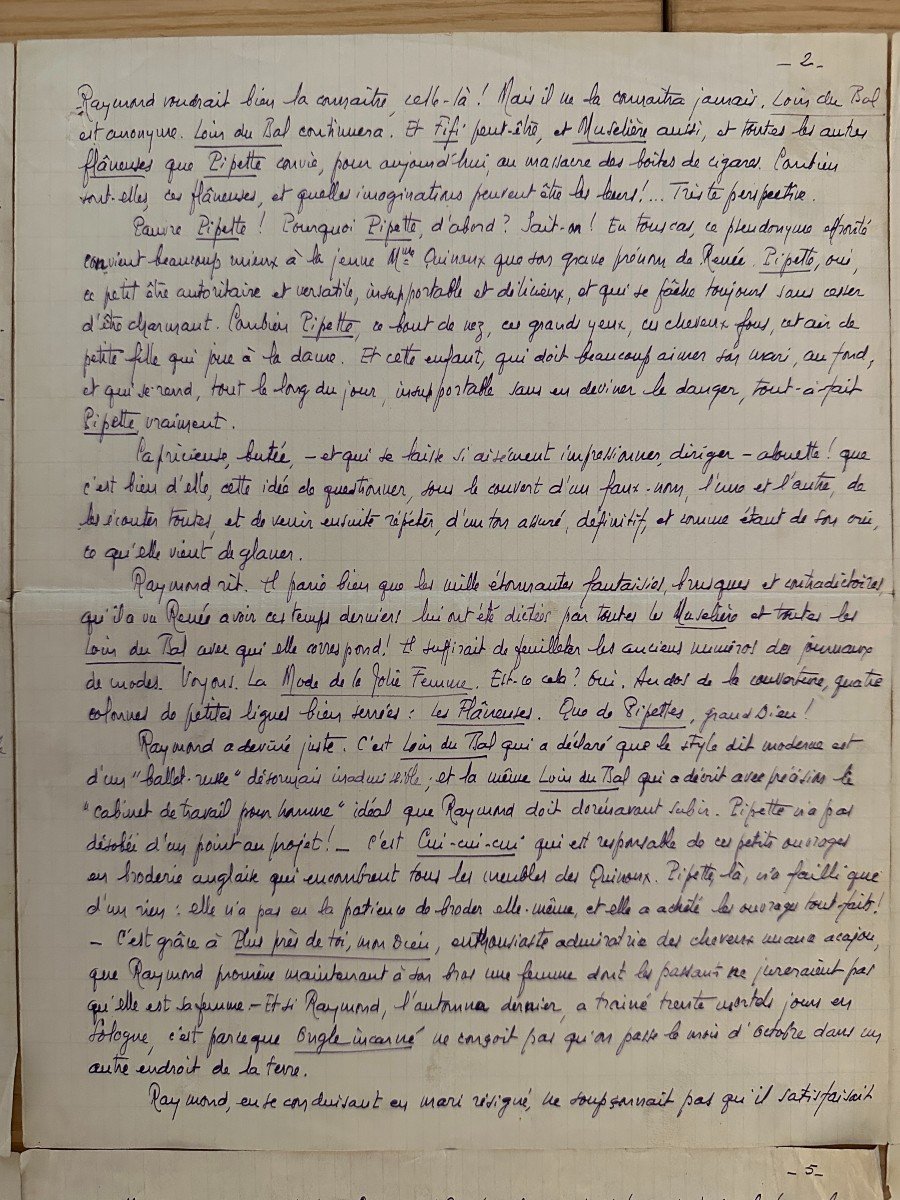 - 2 -
Raymond voudrait bien la connaître, celle-là ! Mais il ne la connaitra jamais. Loin du Bal
est anonyme. Loin du Bal continuera. Et Fifi peut-être, et Muselière aussi, et toutes les autres
flâneuses que Pipette convie, pour aujourd'hui, au massacre des boîtes de cigares. Combien
sont-elles, ces flâneuses, et quelles imaginations peuvent être les leurs !... Triste perspective.
Pauvre Pipette ! Pourquoi Pipette, d'abord ? Sait-on ! En tous cas, ce pseudonyme effronté
convient beaucoup mieux à la jeune Mme Quinoux que son grave prénom de Renée. Pipette, oui,
ce petit être autoritaire et versatile, insupportable et délicieux, et qui se fâche toujours sans cesser
d'être charmant. Combien Pipette, ce bout de nez, ces grands yeux, ces cheveux fous, cet air de
petite fille qui joue à la dame. Et cette enfant, qui doit beaucoup aimer son mari, au fond,
et qui se rend, tout le long du jour, insupportable sans en deviner le danger, tout-à-fait
Pipette, vraiment.
Capricieuse, butée, - et qui se laisse si aisément impressionner, diriger - alouette ! que
c'est bien d'elle, cette idée de questionner, sous le couvert d'un faux-nom, l'une et l'autre, de
les écouter toutes, et de venir ensuite répéter, d'un ton assuré, définitif, et comme étant de son cru,
ce qu'elle vient de glaner.
Raymond rit. Il parie bien que les mille étonnantes fantaisies, brusques et contradictoires,
qu'il a vu Renée avoir ces temps derniers lui ont été dictées par toutes les Muselière et toutes les
Loin du Bal avec qui elle correspond ! Il suffirait de feuilleter les anciens numéros des journaux
de modes. Voyons. La Mode de la Jolie Femme. Est-ce cela ? Oui. Au dos de la couverture, quatre
colonnes de petites lignes bien serrées : Les Flâneuses. Que de Pipettes, grand Dieu !
Raymond a deviné juste. C'est Loin du Bal qui a déclaré que le style dit moderne est
d'un "ballet-russe" désormais inadmissible ; et la même Loin du Bal qui a décrit avec précision le
"cabinet de travail pour homme" idéal que Raymond doit dorénavant subir. Pipette n'a pas
désobéi d'un point au projet ! - C'est Cui-cui-cui qui est responsable de ces petits ouvrages
en broderie anglaise qui encombrent tous les meubles des Quinoux. Pipette, là, n'a failli que
d'un rien : elle n'a pas eu la patience de broder elle-même, et elle a acheté les ouvrages tout-faits !
- C'est grâce à Plus près de toi, mon Dieu, enthousiaste admiratrice des cheveux nuance acajou,
que Raymond promène maintenant à son bras une femme dont les passants ne jureraient pas
qu'elle est sa femme. - Et si Raymond, l'automne dernier, a traîné trente mortels jours en
Sologne, c'est parce que Ongle incarné ne conçoit pas qu'on passe le mois d'Octobre dans un
autre endroit de la terre.
Raymond, en se conduisant en mari résigné, ne soupçonnait pas qu'il satisfaisait
- 5 -